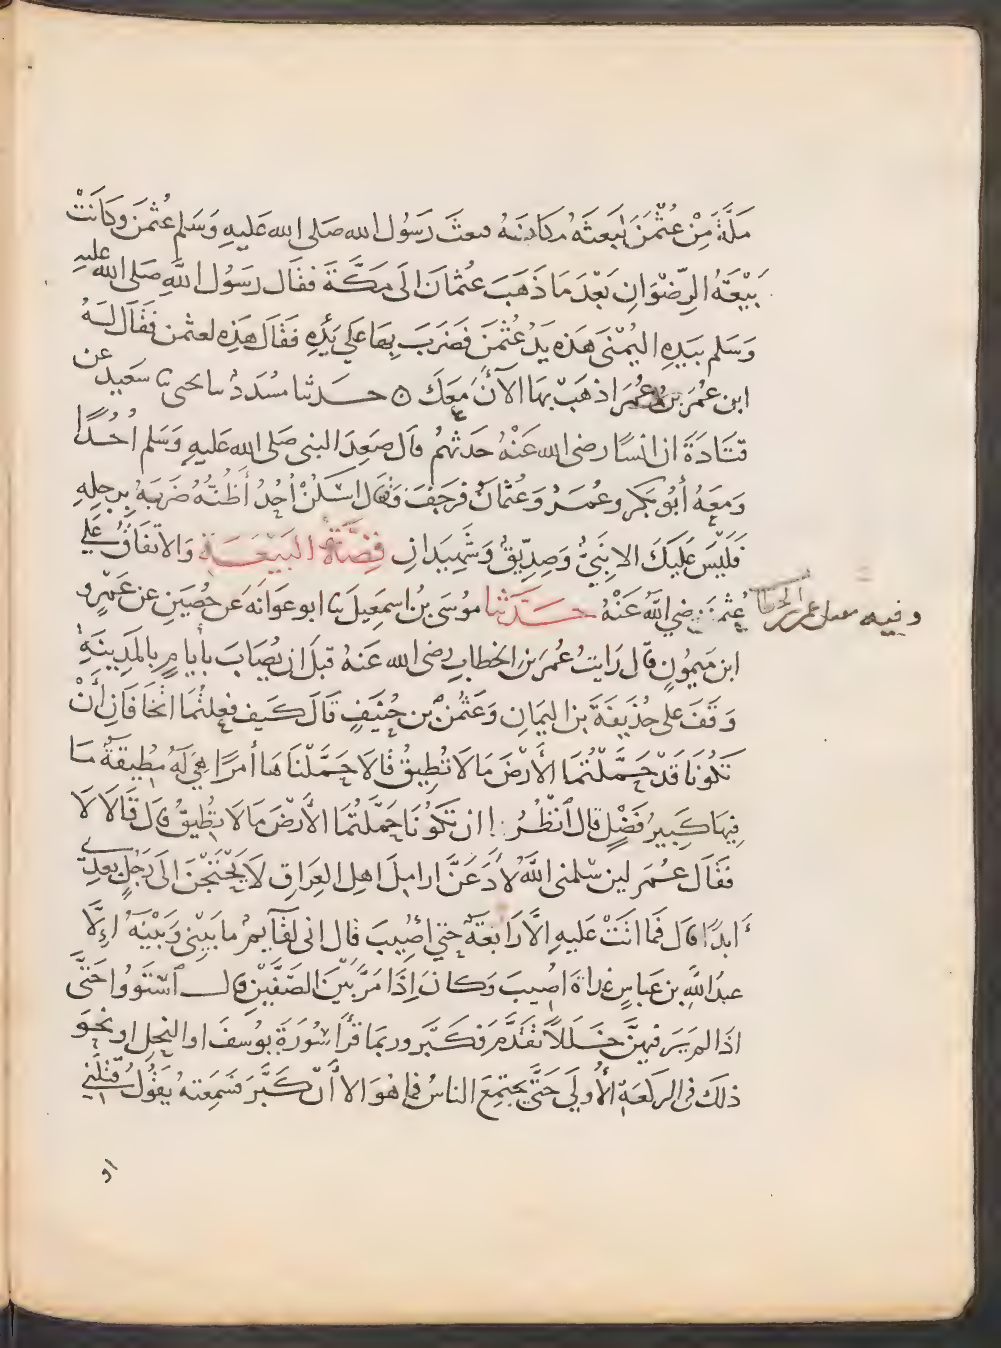 مَكَّةَ مِنْ عُثْمٰنَ لَبَعَثَهُ مَكَانَهُ فبعثَ رَسُول الله صَلى الله عَليهِ وَسَلم عُثمٰنَ وَكانَتْ
بَيْعَةُ الرِّضْوَانِ بَعْدَ مَا ذَهَبَ عُثمَانَ الَى مَكَّةَ فقال رسَوُل اللَّهِ صَلى الله عليهِ
وَسَلم بيَدِهِ اليُمْنَى هَذه يَدُ عُثمٰنَ فَضَرَبَ بِهَا عَلى يَدِهِ فقالَ هَذِهِ لعثمٰن فَقَالَ لَهُ
ابن عُمَرَ اذهَبْ بهَا الآنَ مَعَكَ ۞ حَدثنا مسَدَدُ نا يحيى نا سَعِيد عن
قتَادَةَ ان انسًا رضى الله عَنْهُ حَدثهُم قال صَعِدَ النبى صَلى الله عَليهِ وَسَلم اُحُدًا
وَمَعَهُ أبُو بَكرٍ وعُمَرُ وَعُثمانُ فَرجَفَ وَقال اسْكُنْ أُحُدُ أظُنُّهُ ضَرَبَهُ بِرجلِهِ
فَليْسَ عَليْكَ الا نَبِىٌّ وَصِدِّيقٌ وَشَهِيدَانِ قِصَّةُ البَيْعَةِ وَالاتفَاقُ عَلى
عُثمٰنَ رَضِي اللَّهُ عَنْهُ حَدَّثنا مُوسَى بنُ اسمعِيلَ نا ابو عوَانهَ عَن حُصَينٍ عَن عَمْرٍو
وفيه مقتل عمر بن الخطاب
ابن مَيمُونٍ قال رَايتُ عُمَرَ بنَ الخَطابِ رضى الله عَنهُ قبلَ ان يُصَابَ بأيامٍ بالمَدِينَةِ
وَقَفَ عَلى حُذَيفَةَ بن اليَمَانِ وَعثمٰنَ بن حُنَيفٍ قَالَ كَيفَ فعَلتُمَا اتخَافانِ أنْ
تكُونَا قَدْ حَمَّلْتُمَا الأَرْضَ مَا لا تُطِيقُ قَالا حَمَّلْنَاهَا أمرًا هِىَ لَهُ مُطِيقَةٌ مَا
فِيهَا كَبِيرُ فَضْلٍ قال انْظُرُا ان تكُونَا حَمَّلتُمَا الأَرْضَ مَا لا تطِيقُ قال قالا لا
فقَالَ عُمَر لين سَلمنى اللَّهُ لأَدَعَنَّ ارَامِلَ اهلِ العِرَاقِ لا يَحْتَجْنَ الَى رَجُلٍ بعدِى
أبدًا قال فَمَا اتَتْ عَليهِ الَّا رَابعَةٌ حَتى اُصِيبَ قال انى لقَآيِمٌ ما بَيْنِى وَبَيْنَهُ اِلَّا
عبدُ اللَّهِ بن عَباسٍ غدَاةَ اصِيبَ وَكانَ إذَا مَرَّ بَيْنَ الصَّفَّيْنِ قالَ اسْتَوُوا حَتَّى
اذا لم يَرَ فيهِنَّ خَلَلاً تقَدَّمَ فَكَبَّرَ وربمَا قَرأَ سُورَةَ يوسُفَ او النحِلِ او نحْوَ
ذلكَ فى الرَكعَةِ الأُولَى حَتَّى يجتمِعَ الناسُ فما هُوَ الا أَنْ كَبَّرَ فسَمِعتهُ يَقُولُ قَتَلَنِي
او